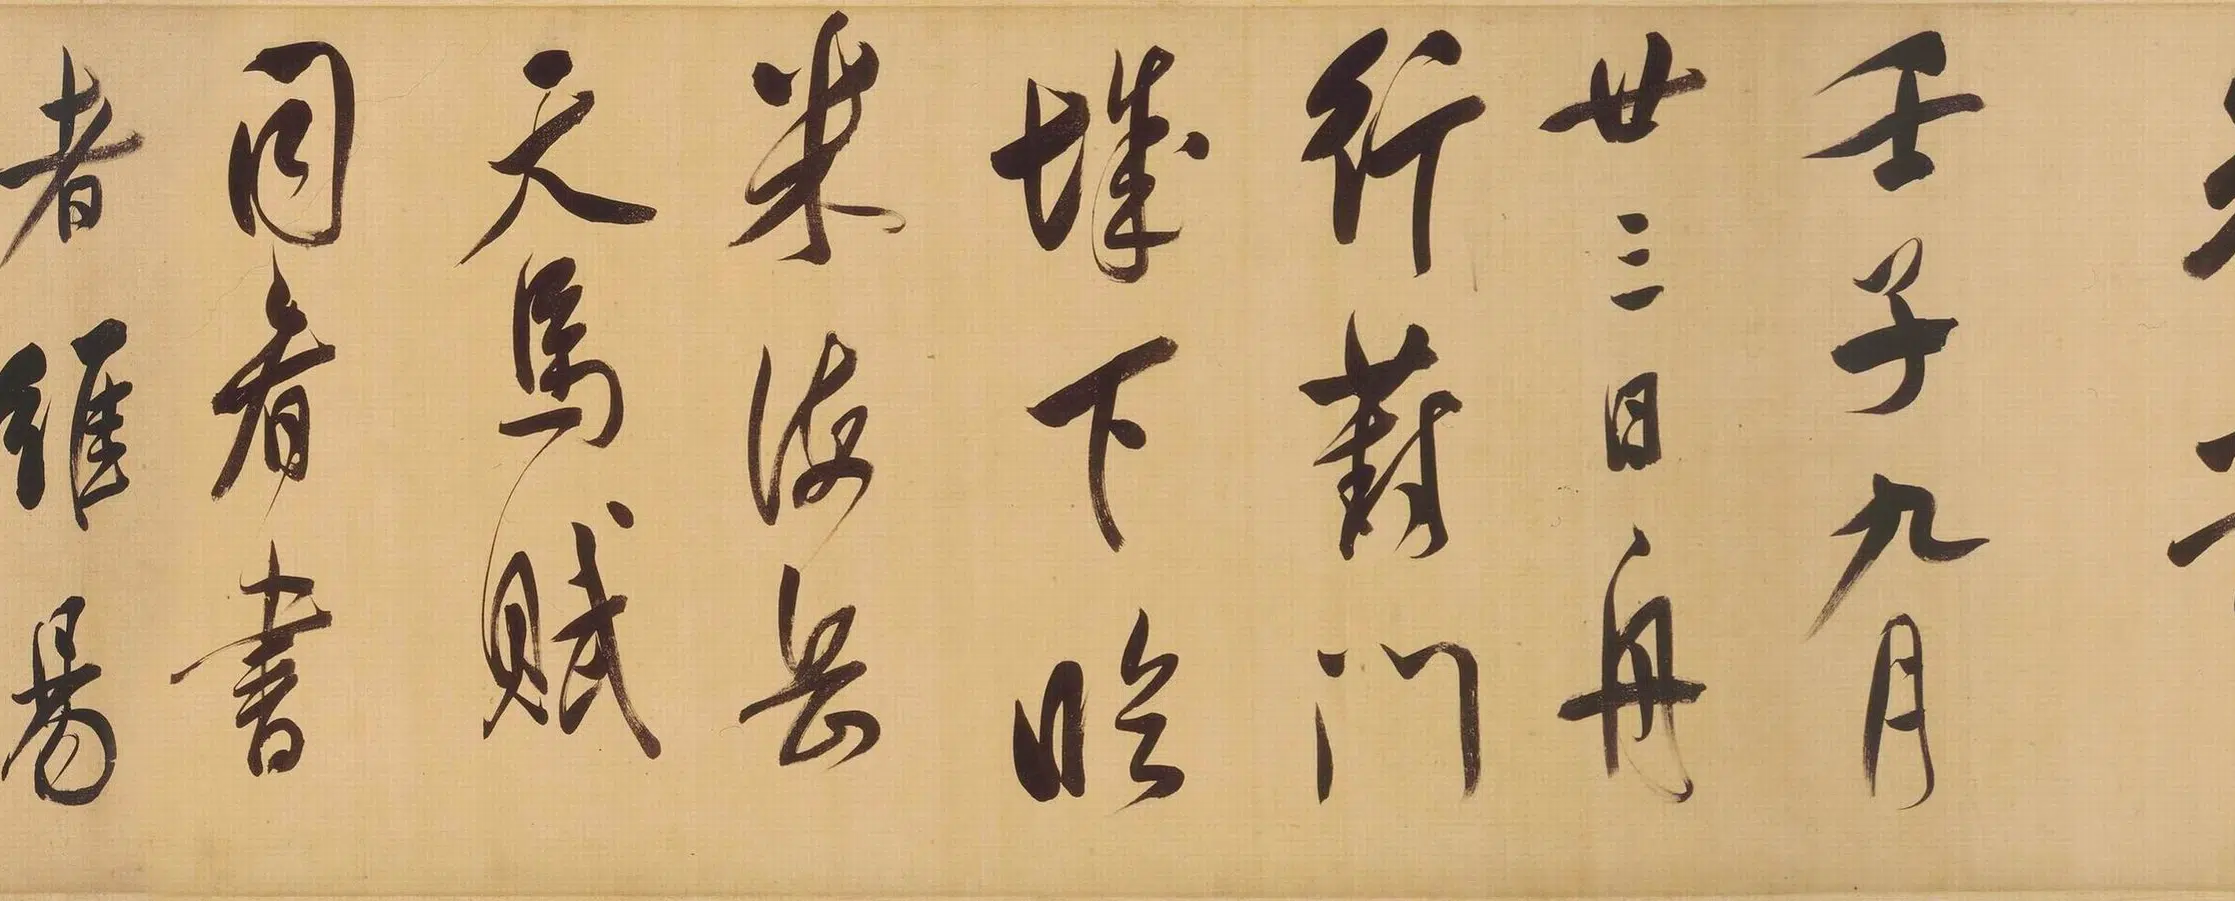 壬子九月
廿三日舟
行葑門
城下臨
米海岳
天馬賦
同看書
者維揚